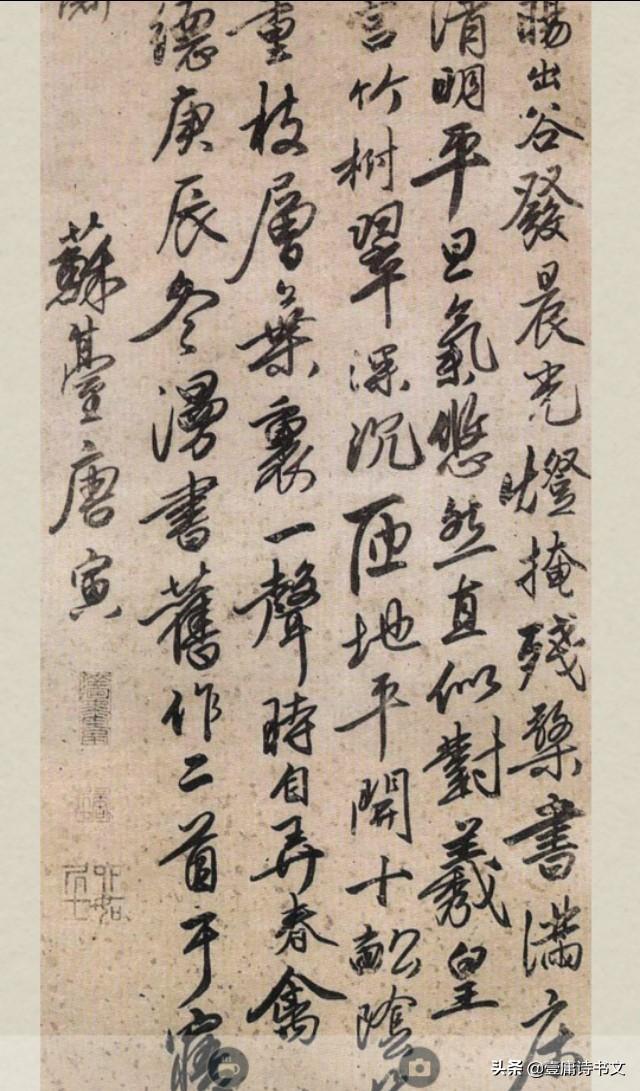 暘出谷發晨光燈掩殘檠書滿床
清明平旦氣悠然直似對羲皇
言竹樹翠深沉匝地平開十畝陰
重枝層葉裏一聲時自弄春禽
德庚辰冬漫書舊作二首于
蘇臺唐寅
头条 @壹庸诗书文